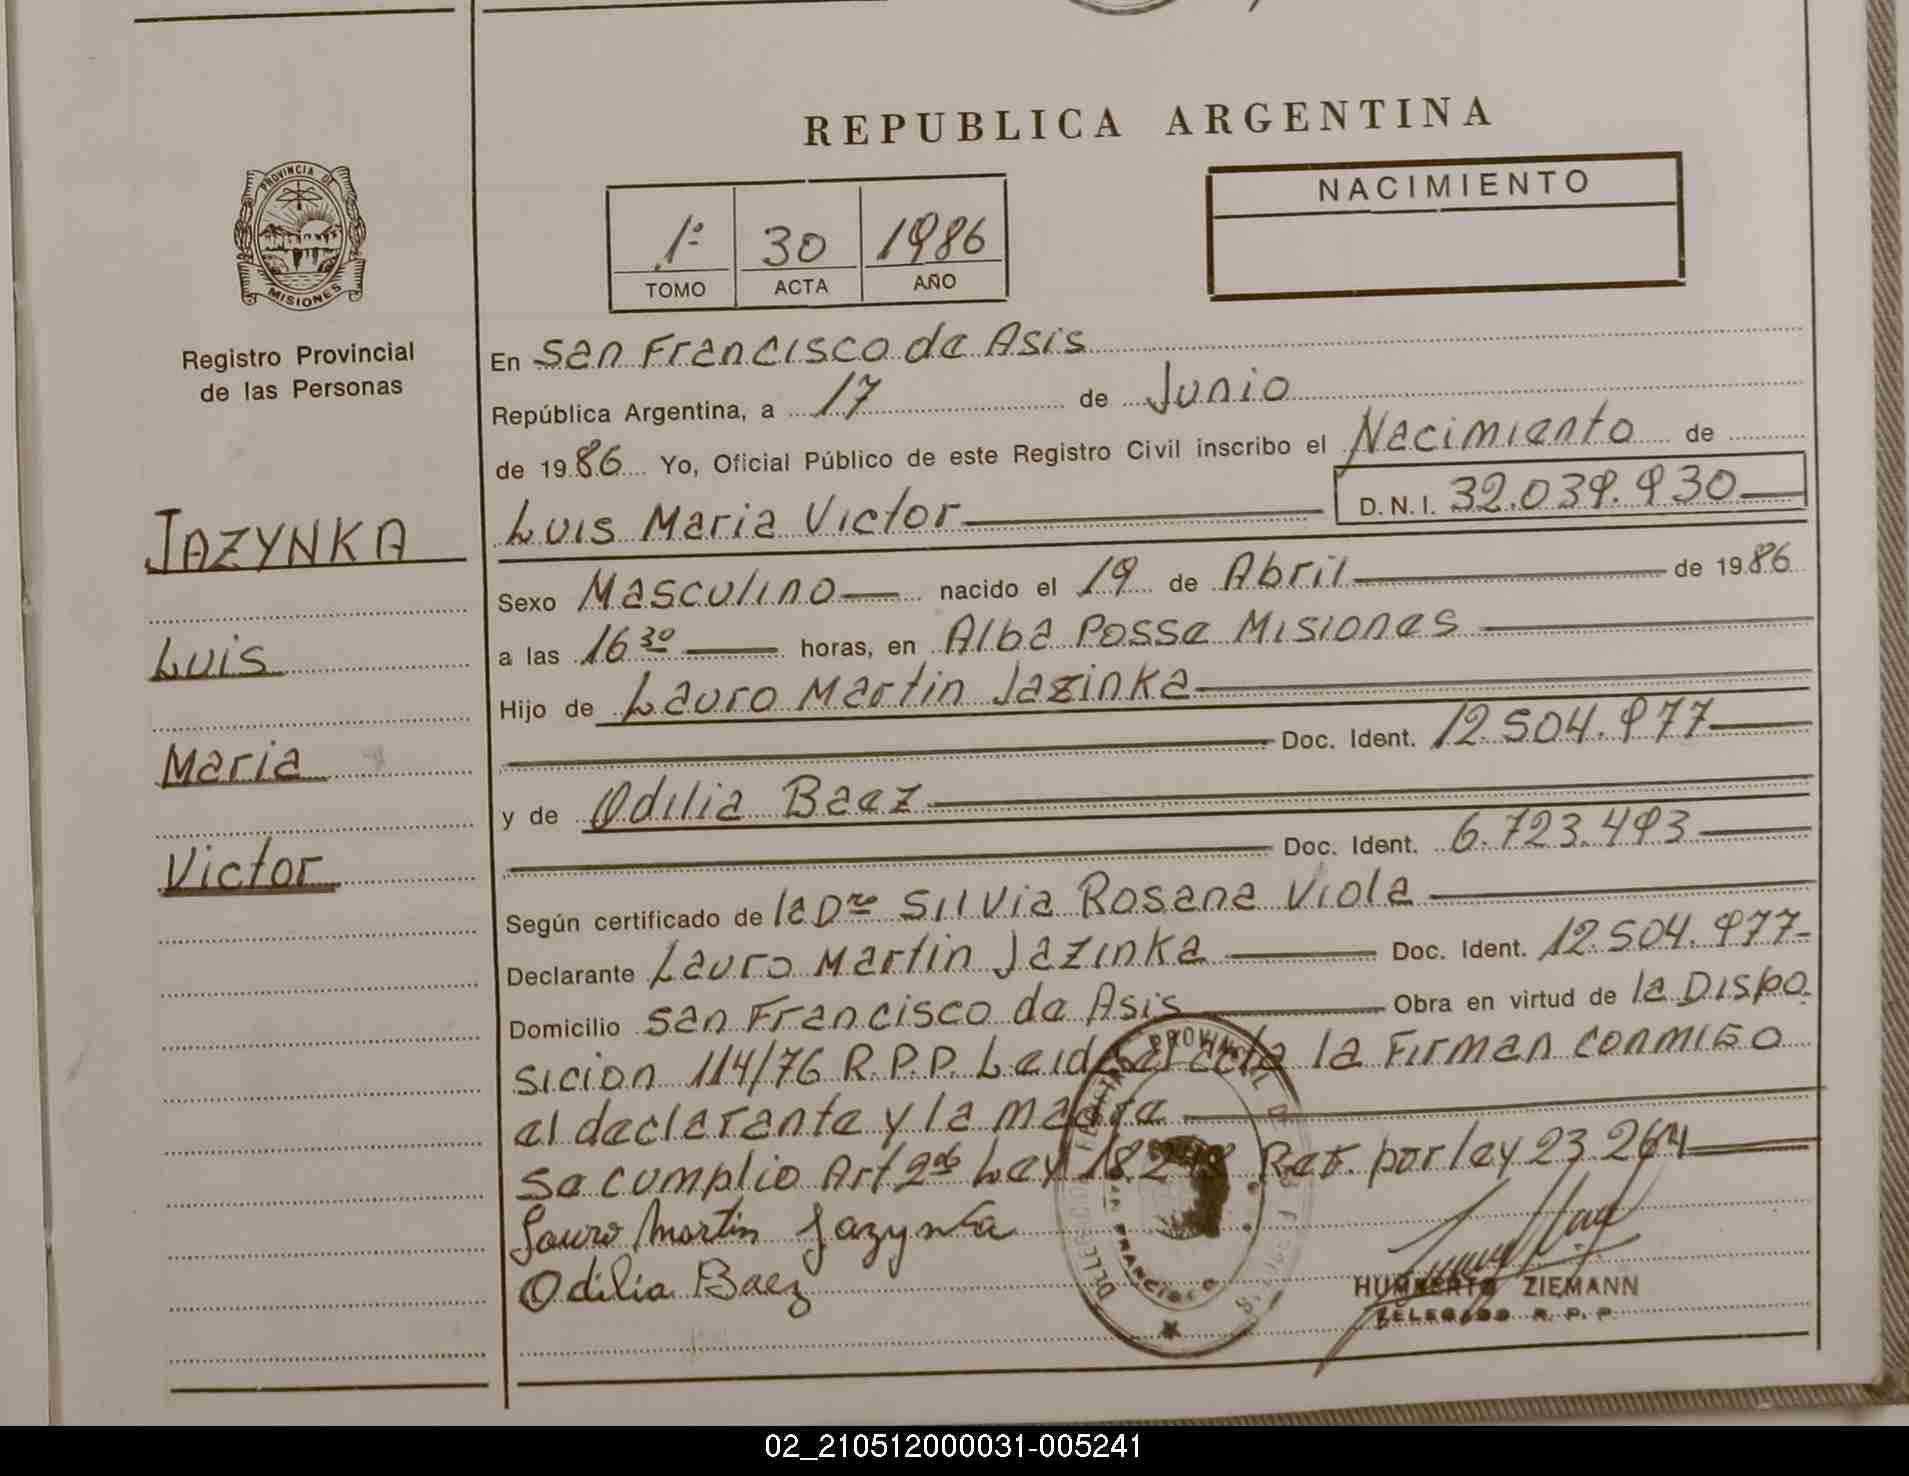 REPUBLICA ARGENTINA
PROVINCIA DE
MISIONES
Registro Provincial
de las Personas
JAZYNKA
Luis
Maria
Victor
1º 30 1986
TOMO ACTA AÑO
NACIMIENTO
En San Francisco de Asis
República Argentina, a 17 de Junio
de 1986 Yo, Oficial Público de este Registro Civil inscribo el Nacimiento de
Luis Maria Victor D. N. I. 32.039.930
Sexo Masculino nacido el 19 de Abril de 1986
a las 16 30 horas, en Alba Posse Misiones
Hijo de Lauro Martin Jazinka
Doc. Ident. 12.504.977
y de Odilia Baez
Doc. Ident. 6.723.493
Según certificado de la Dra Silvia Rosana Viola
Declarante Lauro Martin Jazinka Doc. Ident. 12.504.977
Domicilio San Francisco de Asis Obra en virtud de la Dispo
sicion 114/76 R.P.P. Leida el acta la Firman conmigo
el declarante y la madre
se cumplio Art 2do Ley 18.248 Ref. por ley 23.264
Lauro Martin Jazynka
Odilia Baez
HUMBERTO ZIEMANN
DELEGADO R. P. P.
02_210512000031-005241